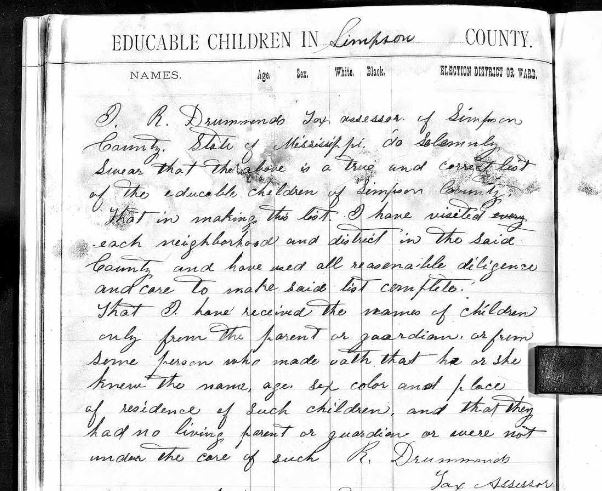 EDUCABLE CHILDREN IN Simpson COUNTY.
NAMES. Age. Sex. White. Black. ELECTION DISTRICT OR WARD.
I. R. Drummonds Tax assessor of Simpson
County. State of Mississippi, do Solemnly
Swear that the above is a true and correct list
of the educable children of Simpson County.
That in making this list. I have viseted every
each neighborhood and district in the said
County and have used all reasonable diligence
and care to make said list complete.
That I have received the names of children
only from the parent or guardian or from
some person who made oath that he or she
knew the name, age sex color and place
of residence of such children, and that they
had no living parent or guardian or were not
under the care of such R. Drummonds
Tax Assessor